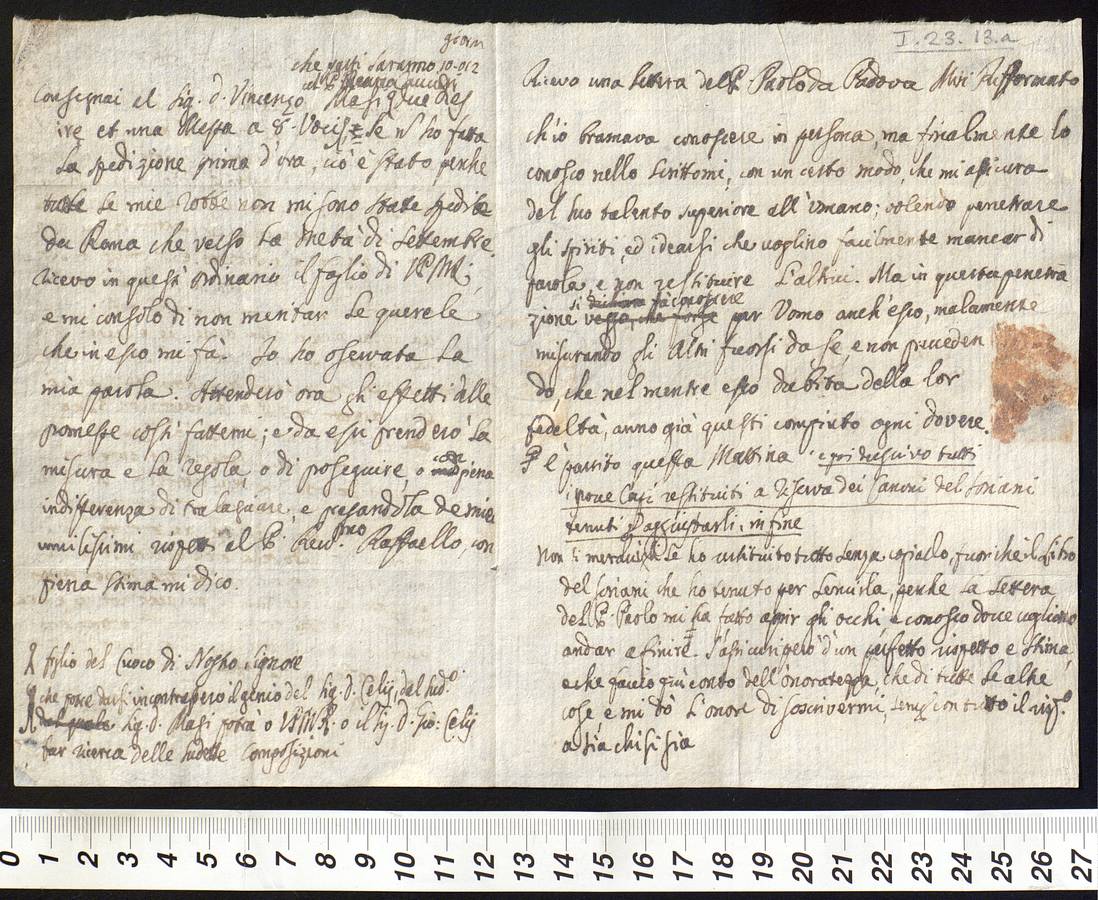 giorni
che questi saranno 10. o 12
Consegnai al Sig. D. Vincenzo Masi due
ire et una Messa a 8. Voci, e se n'ho fatta
la spedizione prima d'ora, ciò è stato, perche
tutte le mie robbe non mi sono state spedite
da Roma che verso la metà di Settembre.
Ricevo in quest'ordinario il foglio di V.P.M.R.
e mi consolo di non meritar le querele
che in esso mi fà. Io ho osservata la
mia parola. Attenderò ora gli effetti alle
promesse costì fattemi; e da essi prenderò la
misura e la regola, o di proseguire, o con piena
indifferenza di tralasciare, e pregandola de miei
umilissimi rispetti al P. Rev.mo Raffaello, con
piena stima mi dico.
figlio del Cuoco di Nostro Signore
che forse darsi incontrasero il genio del Sig. D. Celij, dal sud.o
Sig. D. Masi potrà o V.P.M.R. o il Sig. D. Gio: Celij
far ricerca delle sudette composizioni
I.23.13.a
Ricevo una lettera del P. Paolo da Padova Mri Rifformato
ch'io bramava conoscere in persona, ma finalmente lo
conosco nello scrittomi, con un certo modo, che mi assicura
del suo talento superiore all'umano; volendo penetrare
gli spiriti, ed idearsi che voglino facilmente mancar di
parola e non restituire l'altrui. Ma in questa penetra
si dichiara fà conoscere
zione verso, che forse per Uomo anch'esso, malamente
misurando gli Altri fuorsi da se, e non preceden
do, che nel mentre esso dubita della lor
fedeltà, anno già questi compiuto ogni dovere.
P è partito questa Mattina
tenuti p aggiustarli, in fine
Non si meravigli se ho restituito tutto senza copiarlo, fuorchè il Libro
del Soriani che ho tenuto per servirla, perche la lettera
del P. Paolo mi ha fatto aprir gli occhi e conosco dove vogliono
andar a finire. S'assicuri però d'un perfetto rispetto e stima,
e che faccio più conto dell'onoratezza, che di tutte le altre
cose e mi dò l'onore di soscrivermi, con tutto il risp.o
a sia chi si sia